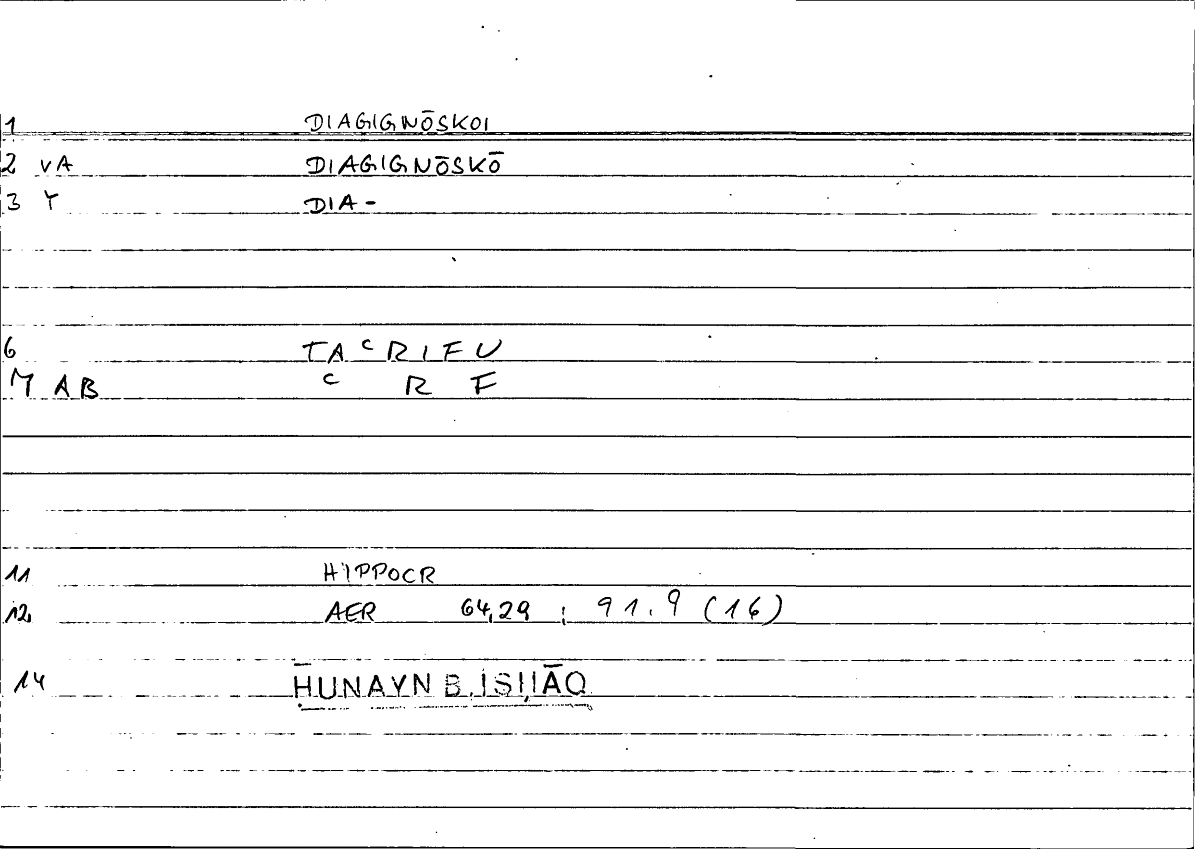 1 DIAGIGNŌSKOI
2 VA DIAGIGNŌSKŌ
3 Y DIA-
6 TAᶜRIFU
7 AB ᶜ R F
11 HIPPOCR
12 AER 64,29 ; 91.9 (16)
14 ḤUNAYN B. ISḤĀQ